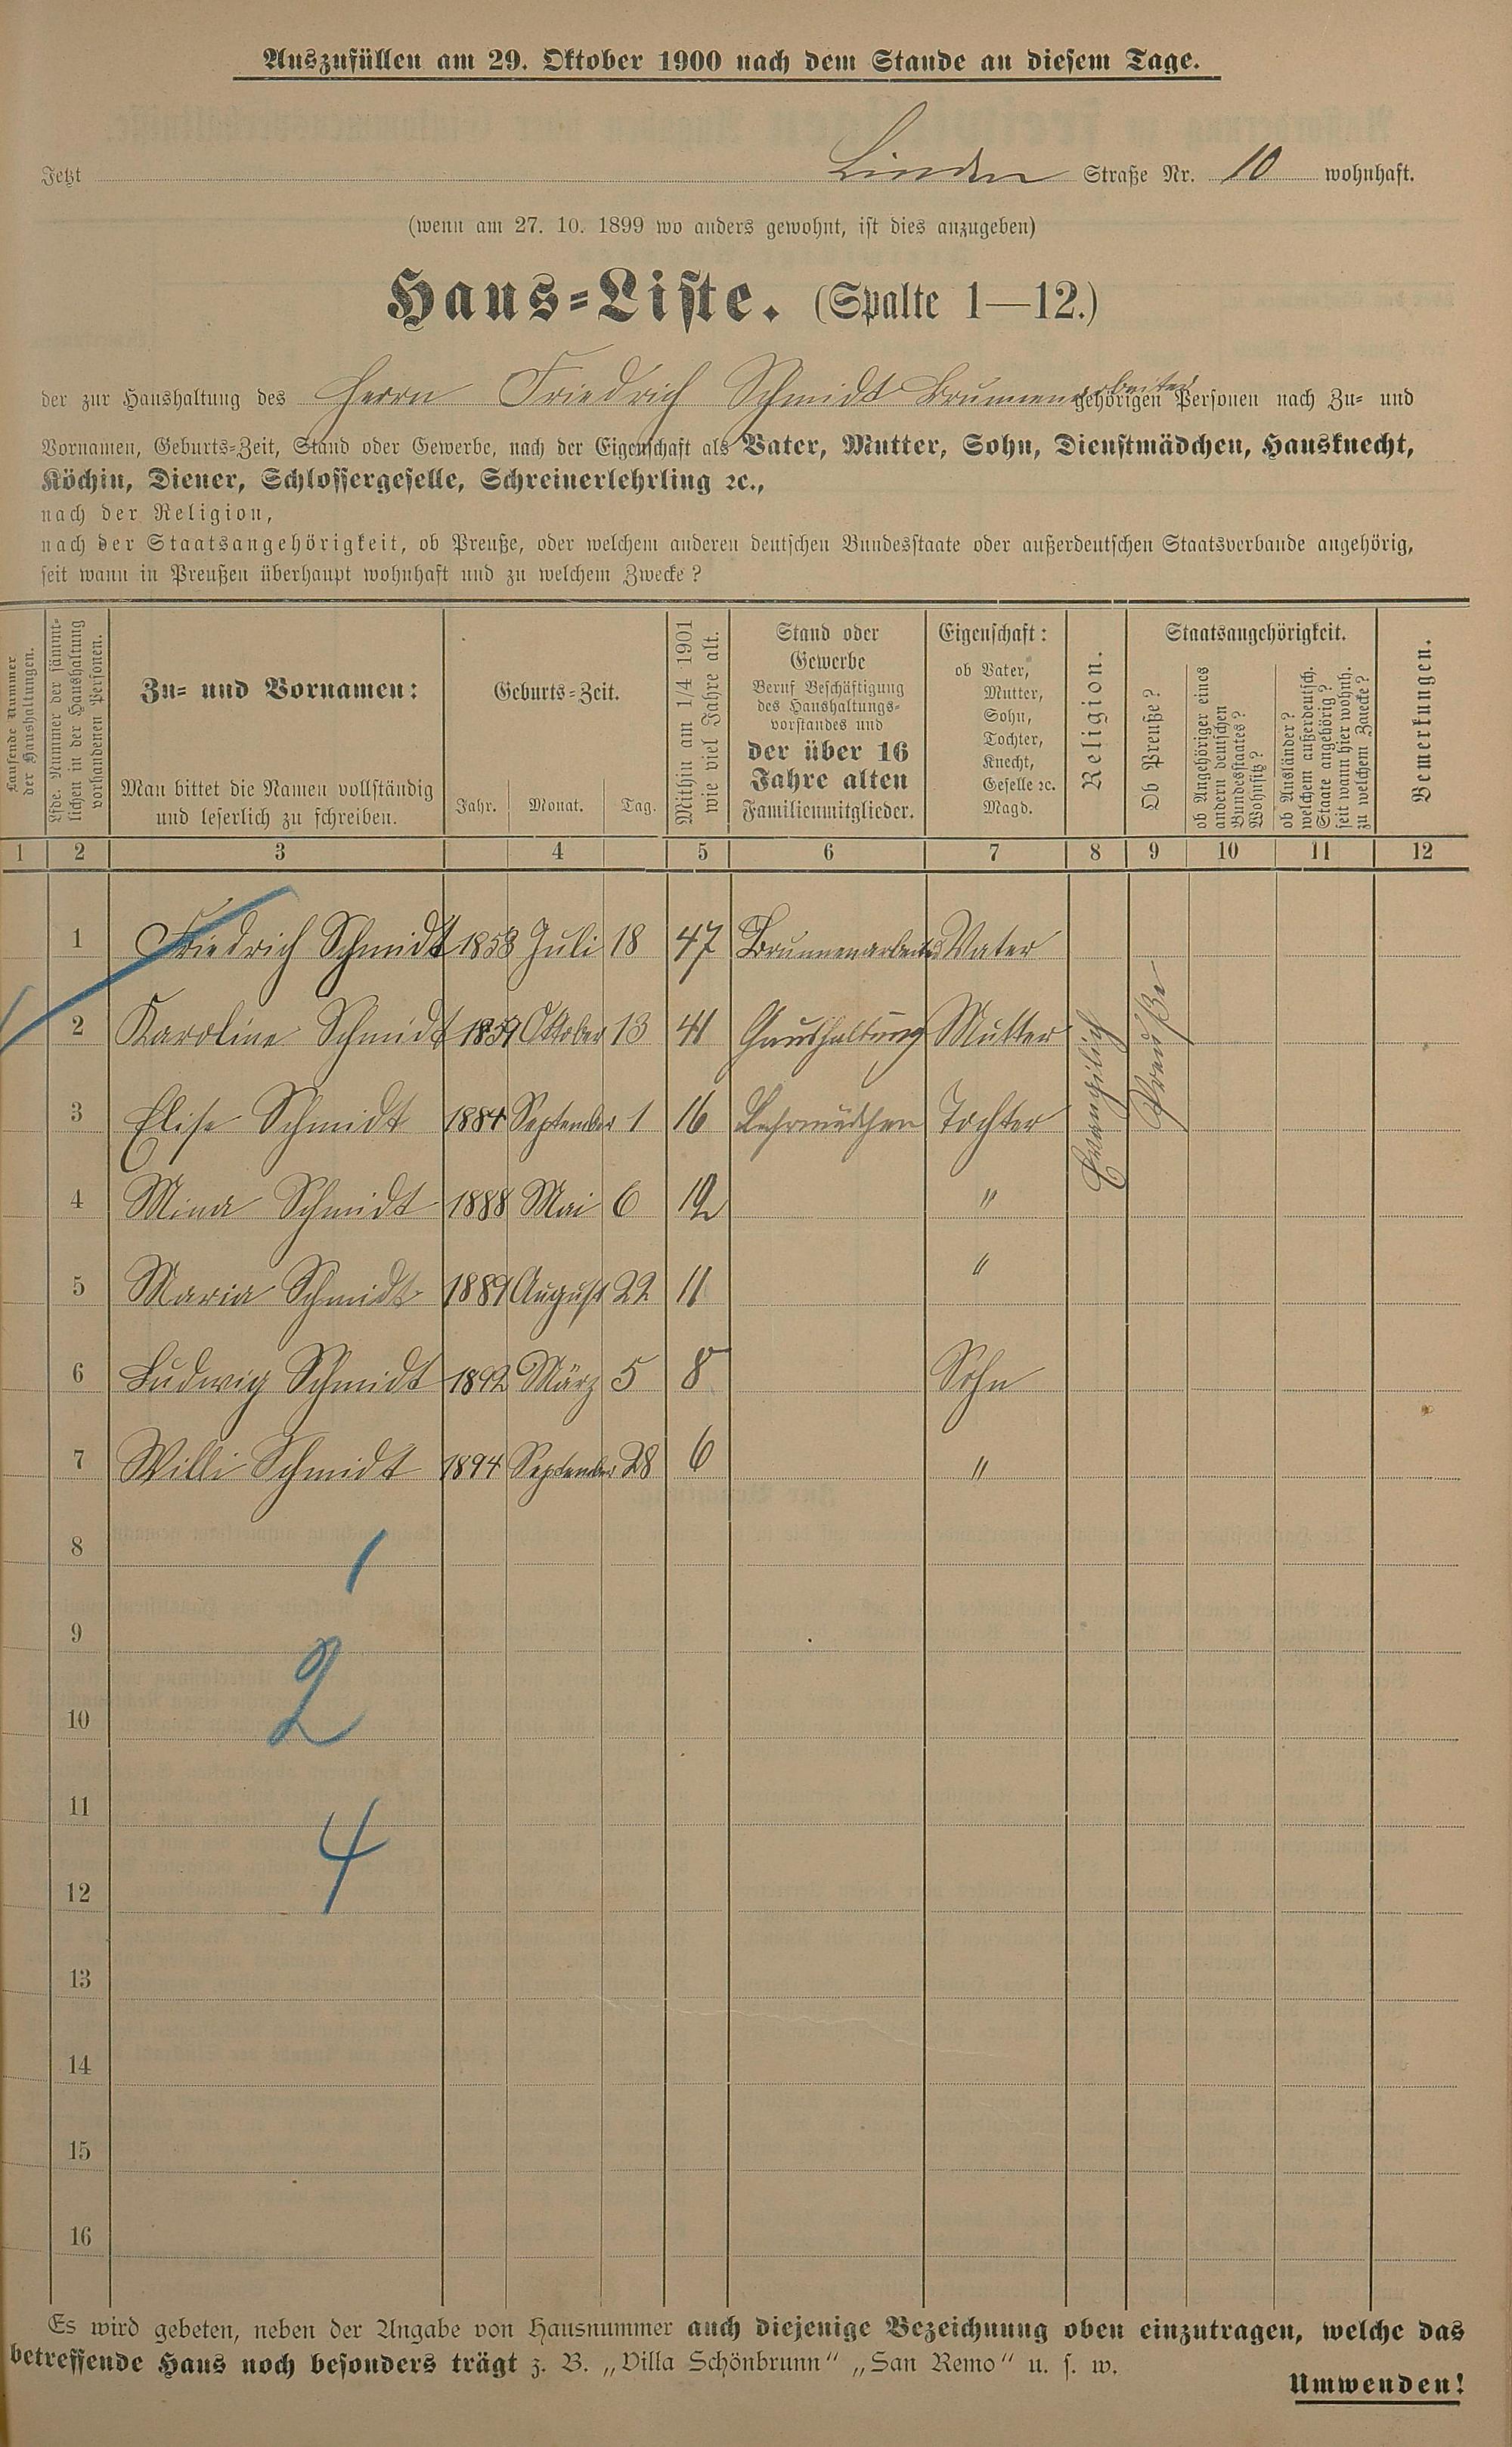 Auszufüllen am 29. Oktober 1900 nach dem Stande an diesem Tage.
Jetzt Linden Straße Nr. 10 wohnhaft.
(wenn am 27. 10. 1899 wo anders gewohnt, ist dies anzugeben)
Haus-Liste. (Spalte 1—12.)
der zur Haushaltung des Herrn Friedrich Schmidt Brunnenarbeiter gehörigen Personen nach Zu- und
Vornamen, Geburts-Zeit, Stand oder Gewerbe, nach der Eigenschaft als Vater, Mutter, Sohn, Dienstmädchen, Hausknecht,
Köchin, Diener, Schlossergeselle, Schreinerlehrling ꝛc.,
nach der Religion,
nach der Staatsangehörigkeit, ob Preuße, oder welchem anderen deutschen Bundesstaate oder außerdeutschen Staatsverbande angehörig,
seit wann in Preußen überhaupt wohnhaft und zu welchem Zwecke?
Laufende Nummer
der Haushaltungen.
Lfde. Nummer der sämmt-
lichen in der Haushaltung
vorhandenen Personen.
Zu- und Vornamen:
Man bittet die Namen vollständig
und leserlich zu schreiben.
Geburts-Zeit.
Jahr. Monat. Tag.
Mithin am 1/4 1901
wie viel Jahre alt.
Stand oder
Gewerbe
Beruf Beschäftigung
des Haushaltungs-
vorstandes und
der über 16
Jahre alten
Familienmitglieder.
Eigenschaft:
ob Vater,
Mutter,
Sohn,
Tochter,
Knecht,
Geselle ꝛc.
Magd.
Religion.
Staatsangehörigkeit.
Ob Preuße?
ob Angehöriger eines
andern deutschen
Bundesstaates?
Wohnsitz?
ob Ausländer?
welchem außerdeutsch.
Staate angehörig?
seit wann hier wohnh.
zu welchem Zwecke?
Bemerkungen.
1 2 3 4 5 6 7 8 9 10 11 12
1 Friedrich Schmidt 1853 Juli 18 47 Brunnenarbeiter Vater
2 Karoline Schmidt 1859 Oktober 13 41 Haushaltung Mutter
3 Elise Schmidt 1884 September 1 16 Lehrmädchen Tochter
Evangelisch
Preuße
4 Mina Schmidt 1888 Mai 6 12 "
5 Maria Schmidt 1889 August 22 11 "
6 Ludwig Schmidt 1892 März 5 8 Sohn
7 Willi Schmidt 1894 September 28 6 "
8
1
9
2
10
11
4
12
13
14
15
16
Es wird gebeten, neben der Angabe von Hausnummer auch diejenige Bezeichnung oben einzutragen, welche das
betreffende Haus noch besonders trägt z. B. „Villa Schönbrunn“ „San Remo“ u. s. w.
Umwenden!